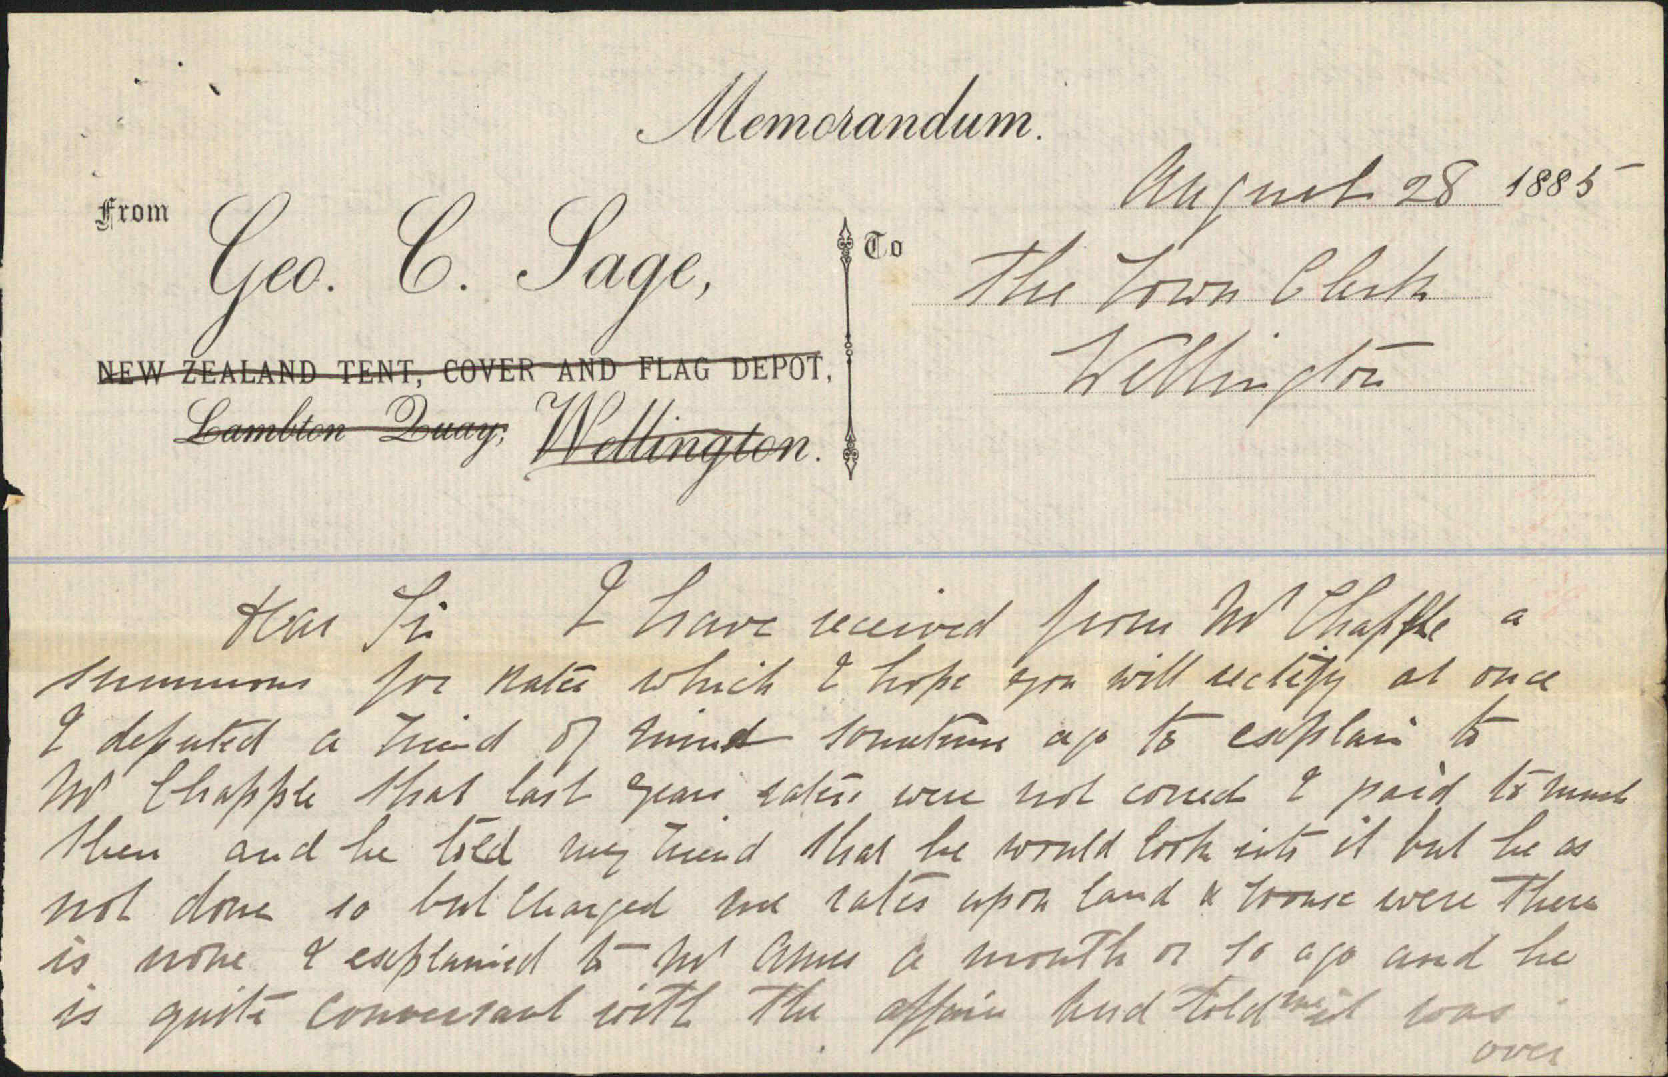 Memorandum.
August 28 1885
From
Geo. C. Sage,
To
The Town Clerk
NEW ZEALAND TENT, COVER AND FLAG DEPOT,
Wellington
Lambton Quay, Wellington.
Dear Sir I have received from Mr Chapple a
summons for Rates which I hope you will rectify at once
I deputed a friend of mine sometime ago to explain to
Mr Chapple that last years rates were not correct I paid to much
then and he told my friend that he would look into it but he as
not done so but charged me rates upon land & house were there
is none I explained to Mr Ames a month or so ago and he
is quite conversant with the affair and told me it was
over